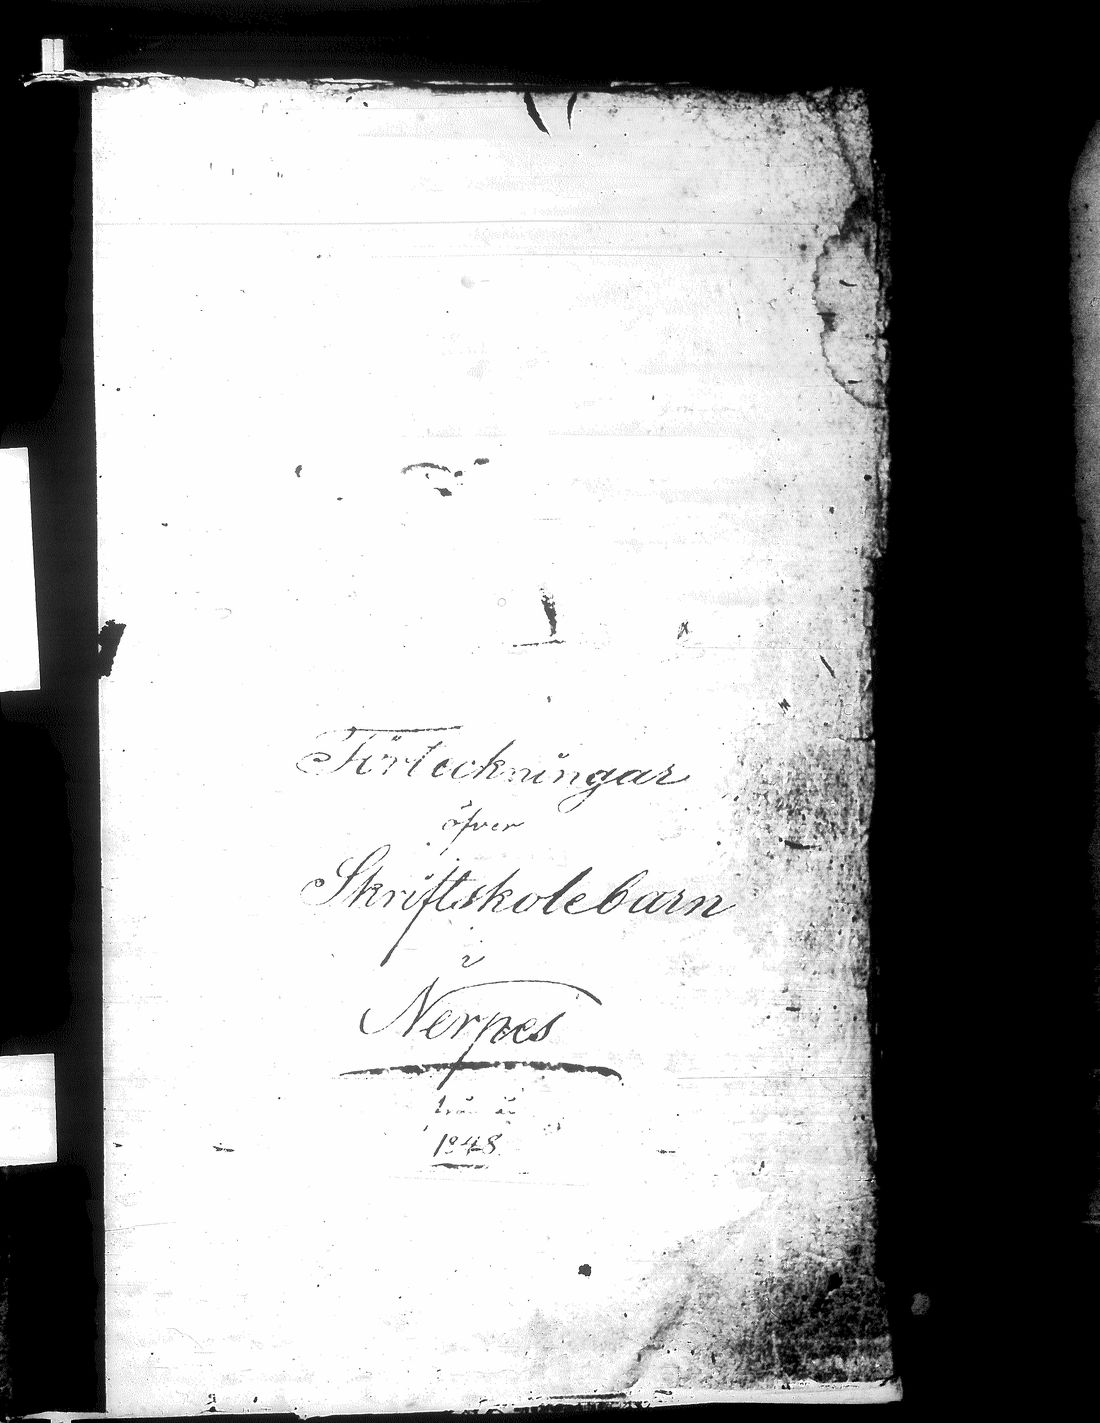 Förteckningar
öfver
Skriftskolebarn
i
Nerpes
från år
1848